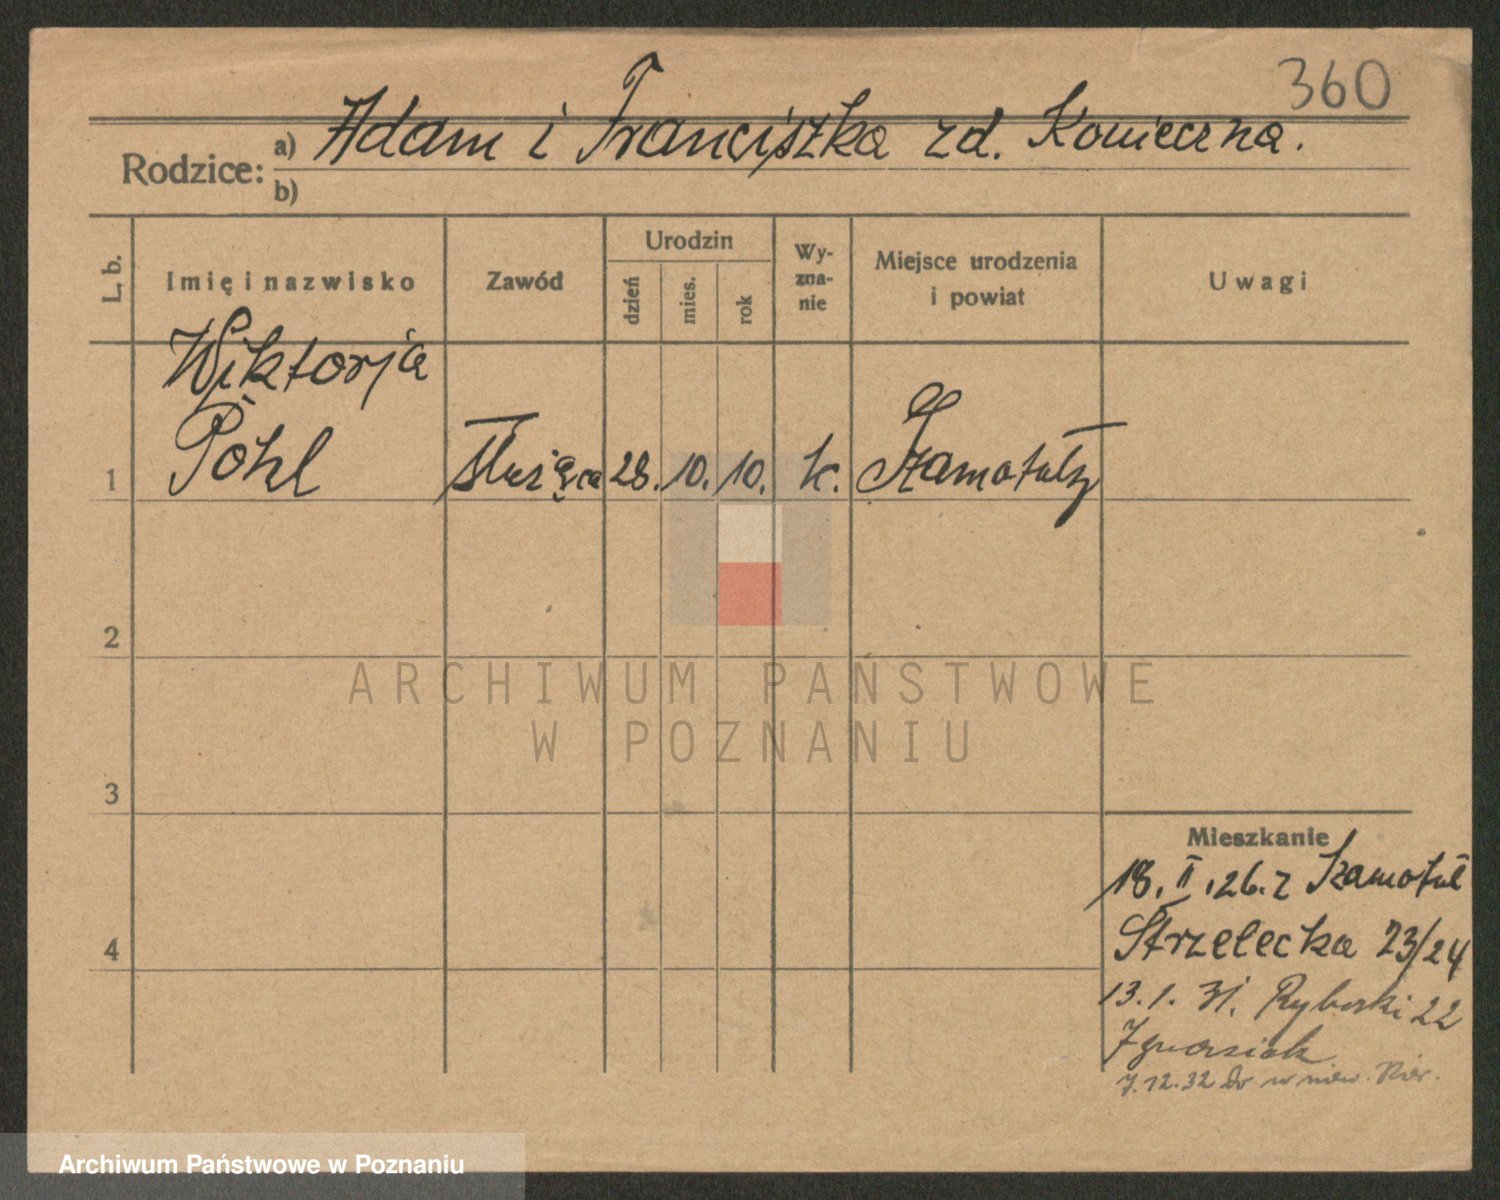 360
Rodzice: a) Adam i Franciszka zd. Konieczna.
b)
L. b.
Imię i nazwisko
Zawód
Urodzin
dzień
mies.
rok
Wy-
zna-
nie
Miejsce urodzenia
i powiat
Uwagi
Wiktorja
1 Pohl służąca 28. 10. 10. k. Szamotuły
2
3
4
Mieszkanie
18. II. 26. z Szamotuł
Strzelecka 23/24
13. 1. 31. Rybaki 22
Ignasiak
7.12.32
ARCHIWUM PAŃSTWOWE
W POZNANIU
Archiwum Państwowe w Poznaniu